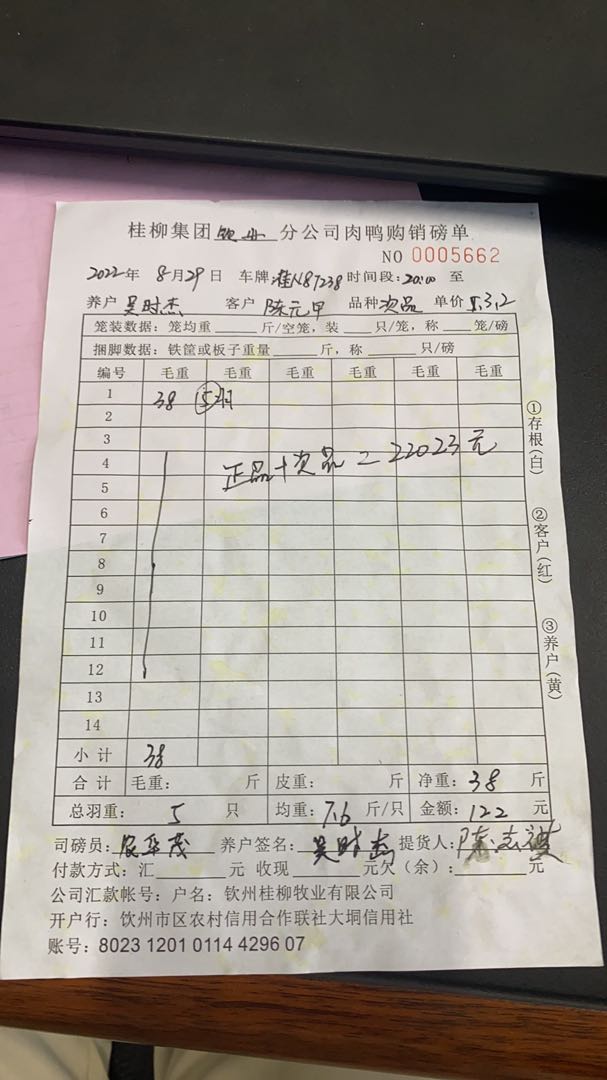 桂柳集团 钦州 分公司肉鸭购销磅单
NO 0005662
2022年 8月29日 车牌:桂N87238 时间段:20:00 至
养户 吴时杰 客户 陈元甲 品种 次品 单价 3.2
笼装数据: 笼均重 斤/空笼, 装 只/笼, 称 笼/磅
捆脚数据: 铁筐或板子重量 斤, 称 只/磅
编号 毛重 毛重 毛重 毛重 毛重 毛重
1 38 5羽
2
3 正品+次品=22023元
4
5
6
7
8
9
10
11
12
13
14
小计 38
合计 毛重: 斤 皮重: 斤 净重: 38 斤
总羽重: 5 只 均重: 7.6 斤/只 金额: 122 元
司磅员: 养户签名: 吴时杰 提货人: 陈志
付款方式: 汇 元 收现 元欠(余): 元
公司汇款帐号: 户名: 钦州桂柳牧业有限公司
开户行: 钦州市区农村信用合作联社大垌信用社
账号: 8023 1201 0114 4296 07
①存根(白)
②客户(红)
③养户(黄)